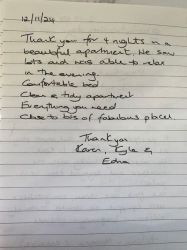 12/11/24
Thank you for 4 nights in a
beautiful apartment. We saw
lots and was able to relax
in the evening.
Comfortable bed
Clean & tidy apartment
Everything you need
Close to lots of fabulous places.
Thank you
Karen, Kyle &
Edna